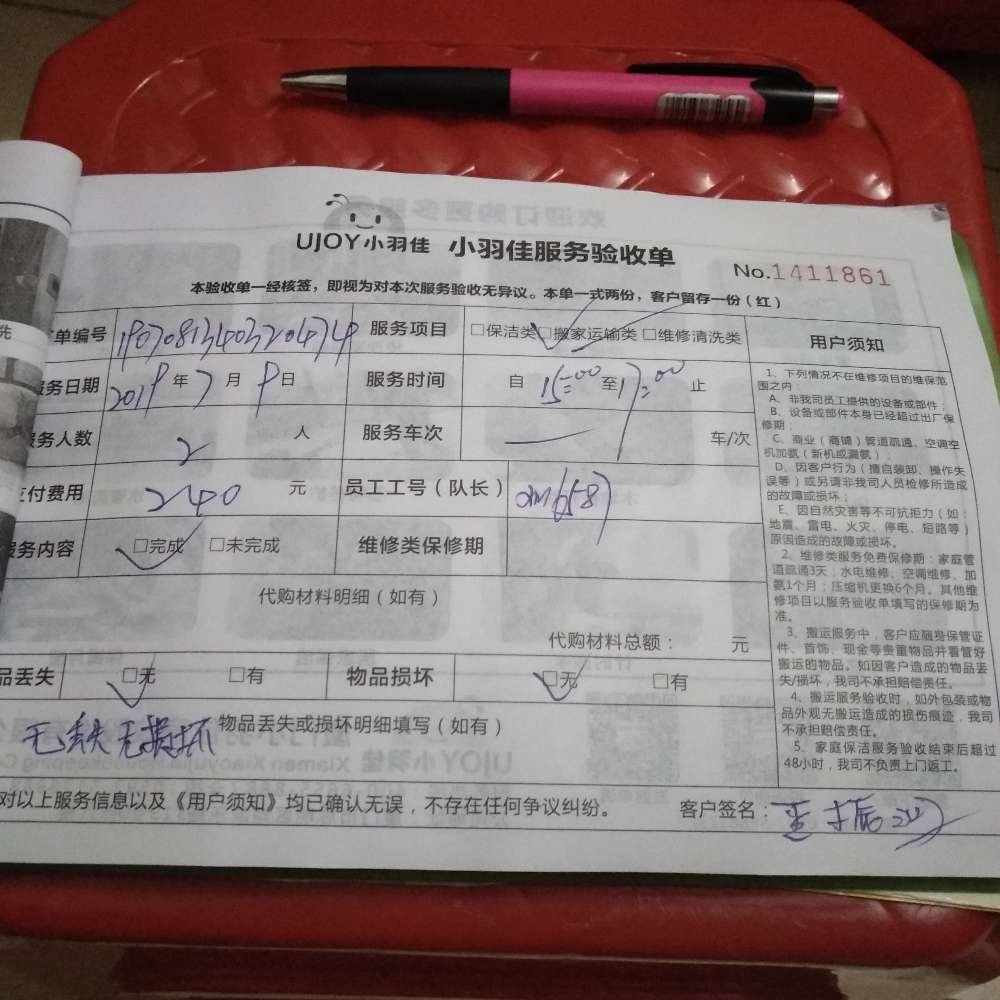 UJOY小羽佳 小羽佳服务验收单
No.1411861
本验收单一经核签，即视为对本次服务验收无异议。本单一式两份，客户留存一份（红）
单编号 服务项目 □保洁类 □搬家运输类 □维修清洗类 用户须知
务日期 2019年7月9日 服务时间 自15:00至17:00止
务人数 2人 服务车次 — 车/次
付费用 240元 员工工号（队长）
务内容 □完成 □未完成 维修类保修期
代购材料明细（如有）
代购材料总额： 元
品丢失 □无 □有 物品损坏 □无 □有
无丢失无损坏 物品丢失或损坏明细填写（如有）
对以上服务信息以及《用户须知》均已确认无误，不存在任何争议纠纷。 客户签名：
1、下列情况不在维修项目的维保范
围之内
A、非我司员工提供的设备或部件；
B、设备或部件本身已经超过出厂保
修期；
C、商业（商铺）管道疏通、空调空
机加氨（新机或漏氨）；
D、因客户行为（擅自装卸、操作失
误等）或另请非我司人员检修所造成
的故障或损坏；
E、因自然灾害等不可抗拒力（如：
地震、雷电、火灾、停电、短路等）
原因造成的故障或损坏。
2、维修类服务免费保修期：家庭管
道疏通3天，水电维修、空调维修、加
氨1个月；压缩机更换6个月。其他维
修项目以服务验收单填写的保修期为
准。
3、搬运服务中，客户应随身保管证
件、首饰、现金等贵重物品并看管好
搬运的物品。如因客户造成的物品丢
失/损坏，我司不承担赔偿责任。
4、搬运服务验收时，如外包装或物
品外观无搬运造成的损伤痕迹，我司
不承担赔偿责任。
5、家庭保洁服务验收结束后超过
48小时，我司不负责上门返工。